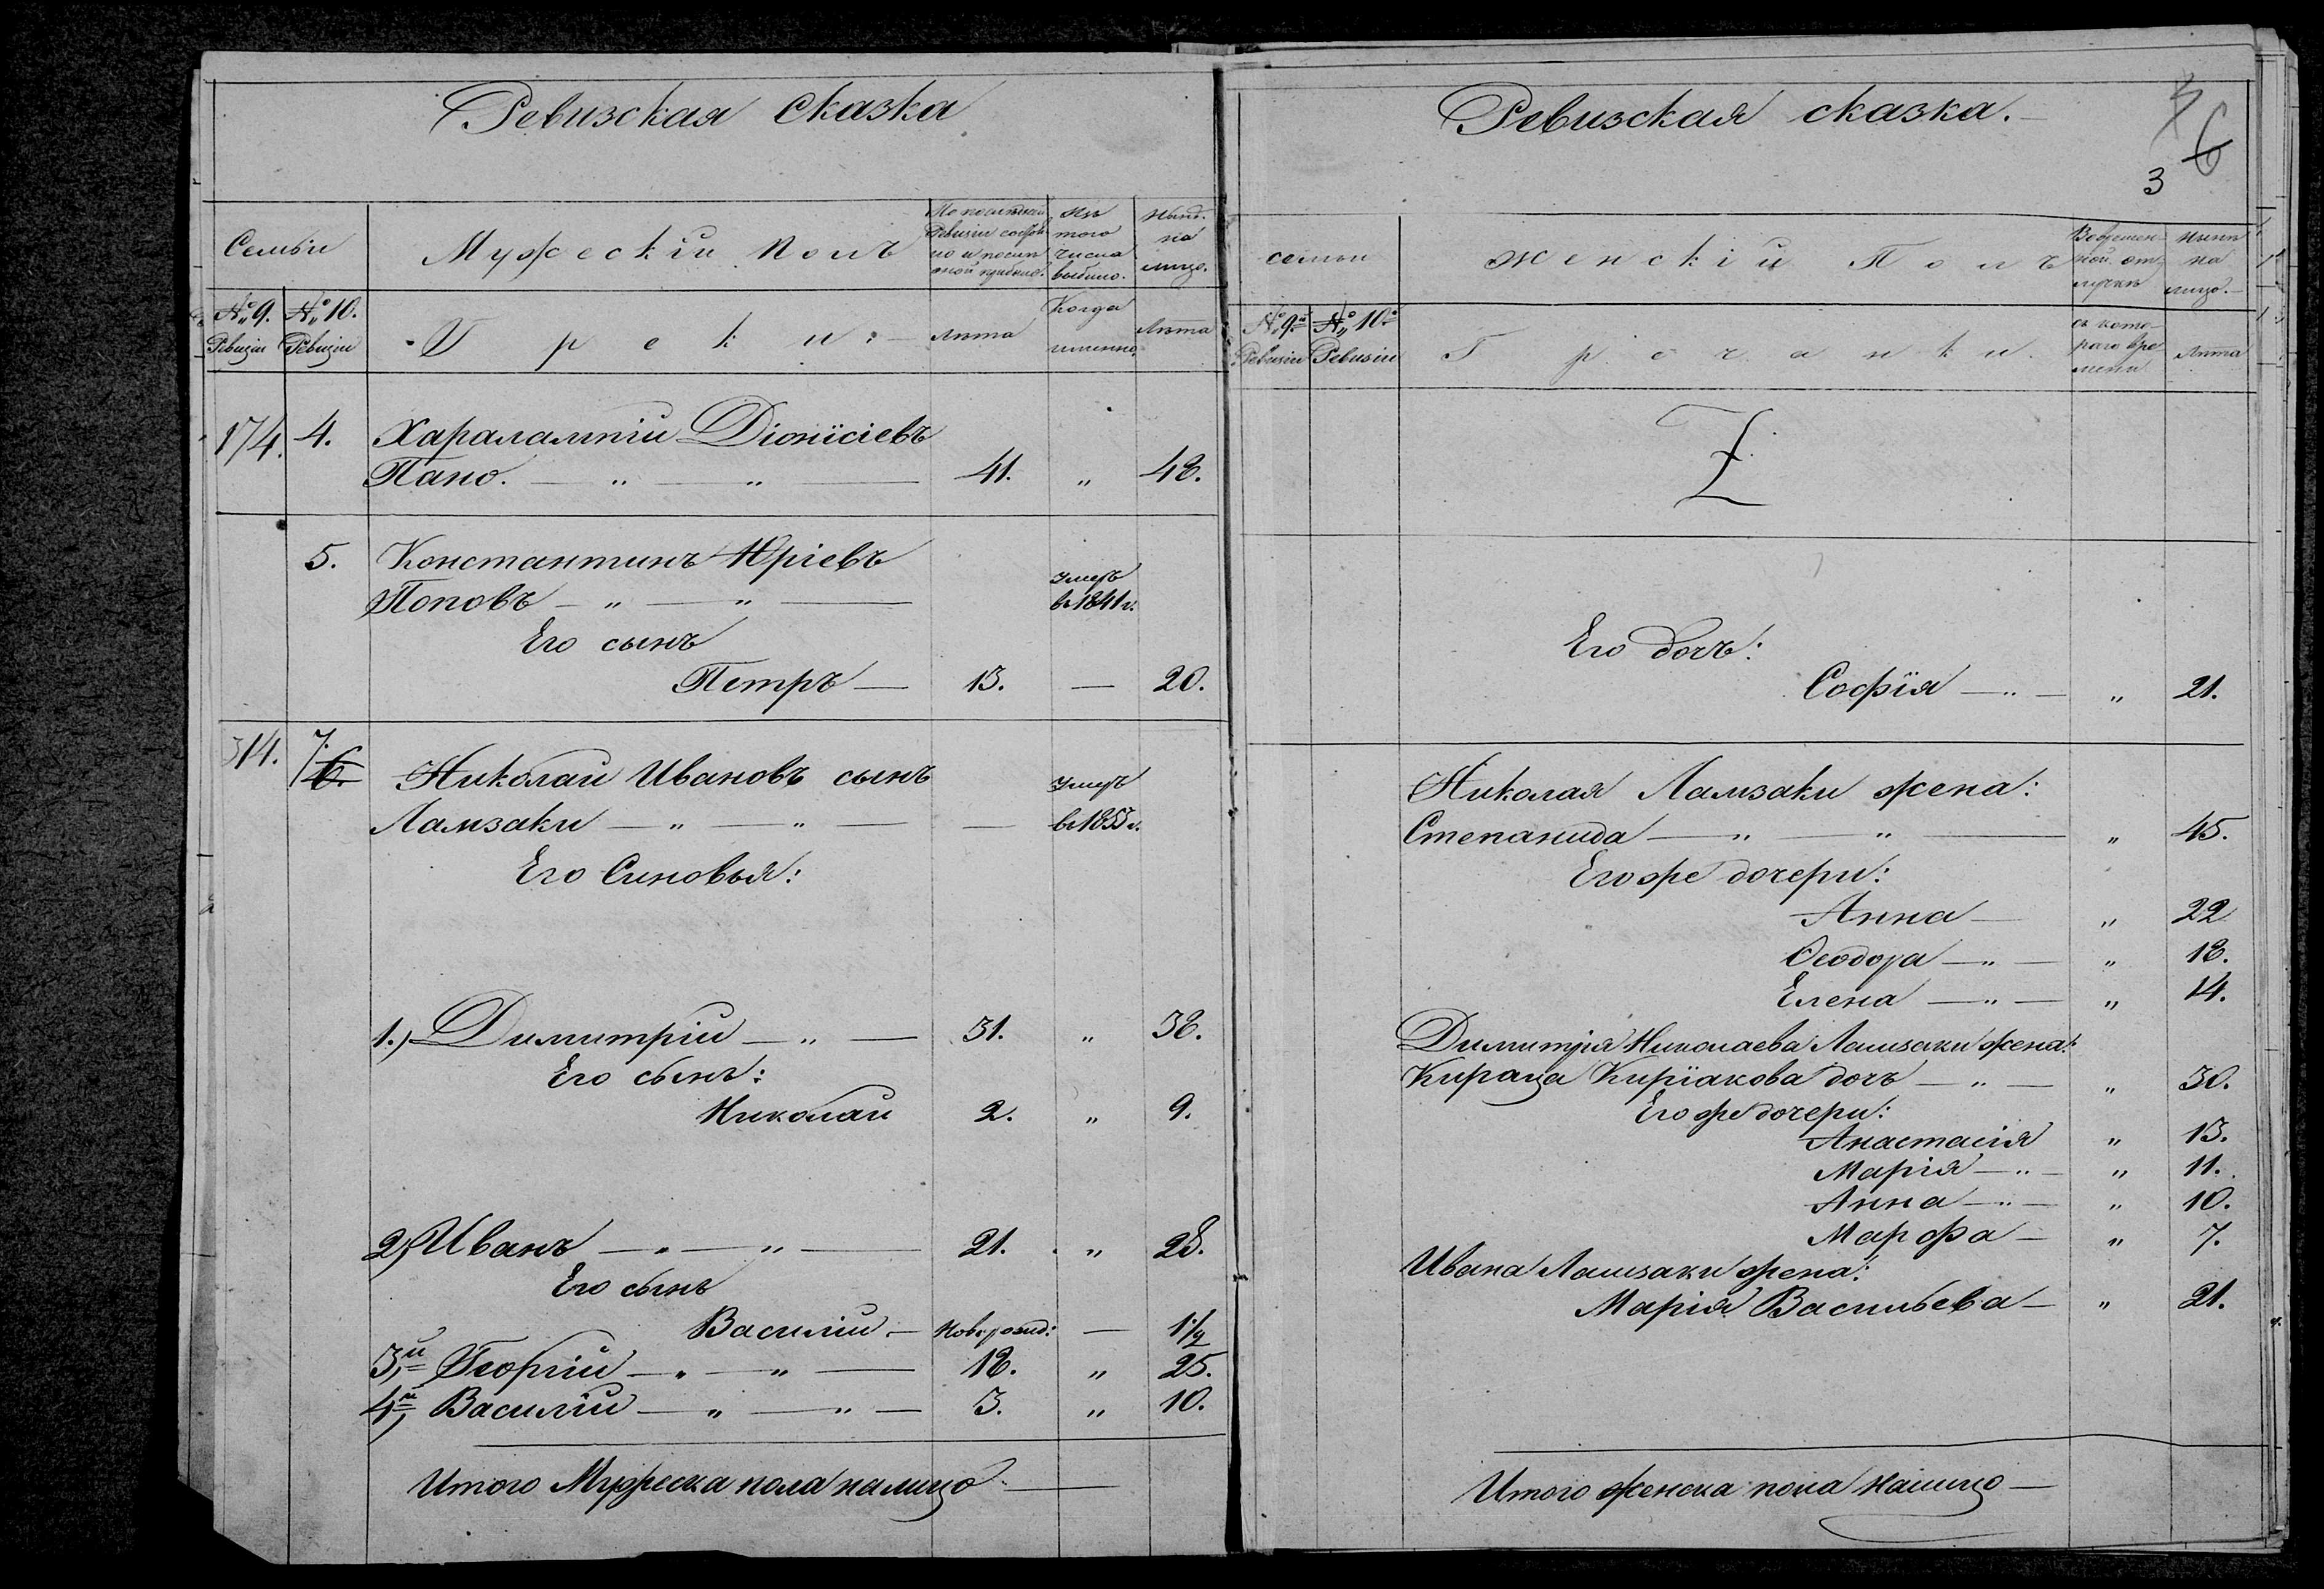 Ревизская Сказка
Семьи
Мужескій Полъ
По последней
Ревизіи состоя
ло и после
оной прибыло.
Изъ
того
числа
выбыло.
Нынѣ
на
лицо.
№ 9.
Ревизіи
№ 10.
Ревизіи
Греки:
лѣта
Когда
именно
Лѣта
174. 4. Харалампій Діонисіевъ
Пано. — " — " — 41. " 48.
5. Константинъ Юріевъ
Поповъ — " — " — Умеръ
въ 1841 г.
Его сынъ
Петръ — 13. — 20.
314. 7. 6. Николай Ивановъ сынъ
Ламзаки — " — " — — Умеръ
въ 1855 г.
Его Синовья:
1.) Димитрій — " — 31. " 38.
Его сынъ:
Николай 2. " 9.
2) Иванъ — " — " — 21. " 28.
Его сынъ
Василій — Новорожд: — 1/2
3й Георгій — " — " — 18. " 25.
4й Василій — " — " — 3. " 10.
Итого Мужеска пола налицо —
Ревизская сказка.
6
3
семьи
Женскій Полъ
Вовремен-
ной от-
лучкѣ
Нынѣ
на
лицо.
№ 9й
Ревизіи
№ 10й
Ревизіи
Гречанки
съ кото-
раго вре
мени
Лѣта
Его дочъ:
Софія — " — " 21.
Николая Ламзаки жена:
Степанида — " " — " 45.
Его же дочери:
Анна — " 22
Ѳеодора — " — " 18.
Елена — " — " 14.
Димитрія Николаева Ламзаки жена:
Кираца Киріакова дочъ — " — " 30.
Его же дочери:
Анастасія " 13.
Марія — " — " 11.
Анна — " — " 10.
Марфа — " 7.
Ивана Ламзаки жена:
Марія Васильева — " 21.
Итого женска пола налицо —